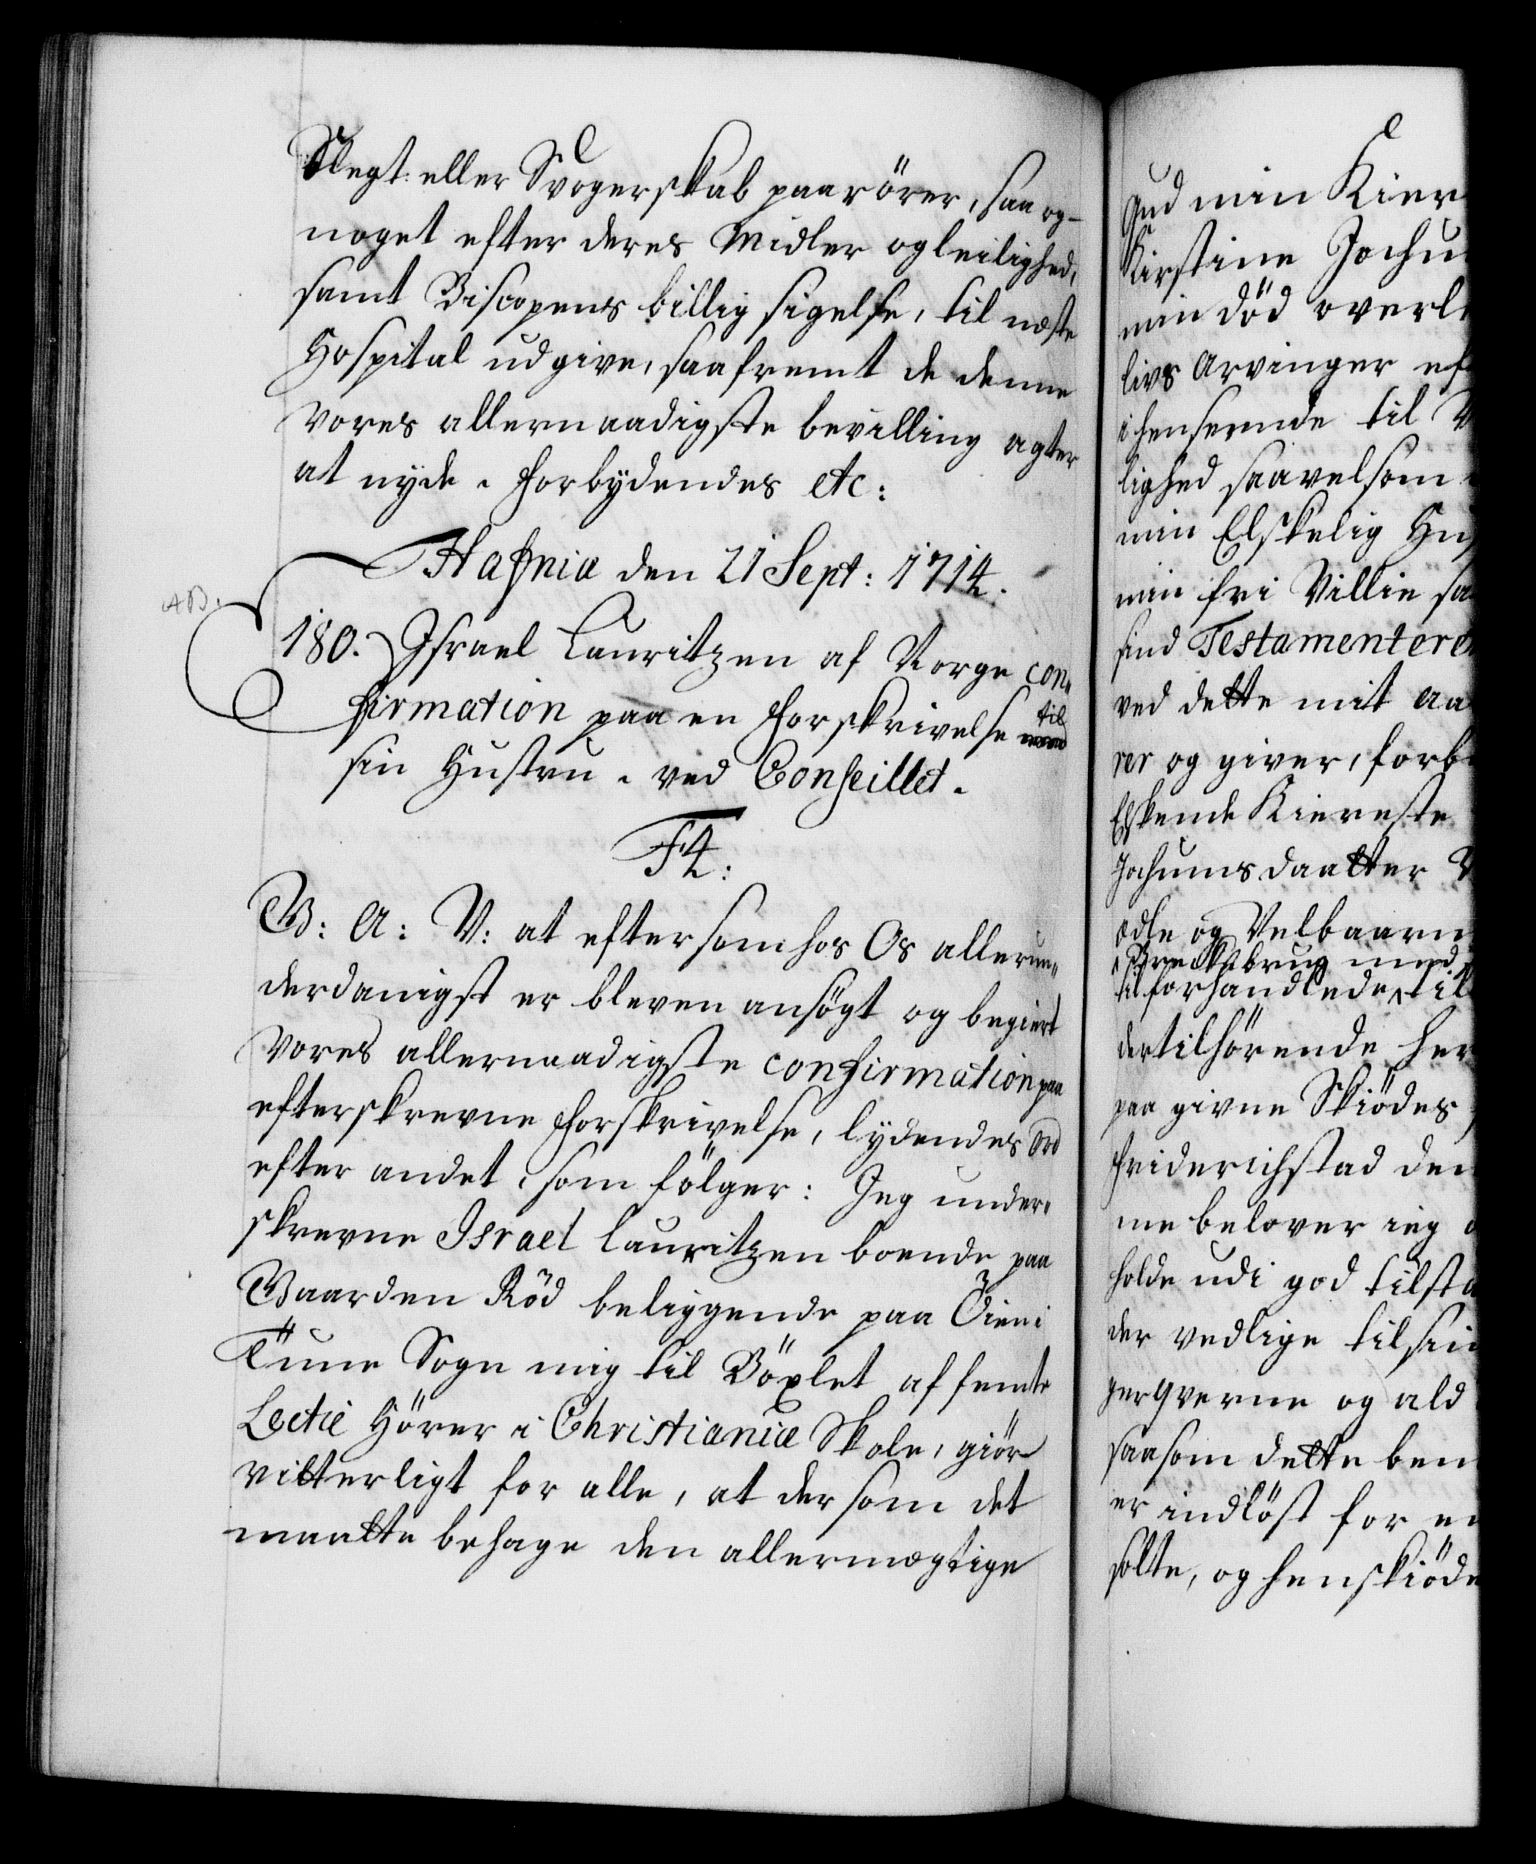 Slegt eller Svogerskab paarörer, saa og
noget efter deres Midler og leilighed,
samt Biscopens billig sigelse, til næste
Hospital udgive, saafremt de denne
vores allernaadigste bevilling agter
at nyde. Forbydendes etc:
Hafniæ den 21 Sept: 1714.
AB.
180. Israel Lauritzen af Norge con-
firmation paa en Forskrivelse til
sin Hustru. ved Conseillet.
F4:
G: A: V: at eftersom hos Os allerun-
derdanigst er bleven ansögt og begiert
vores allernaadigste confirmation paa
efterskrevne Forskrivelse, lydendes ord
efter andet, som fölger: Jeg under-
skrevne Israel Lauritzen boende paa
Gaarden Röd beliggende paa Öien i
Tune Sogn mig til Böxlet af femte
Lectiæ Hörer i Christianiæ Skole, giör
vitterligt for alle, at dersom det
maatte behage den allermægtige
Gud min Kier
Kirstine Jochu
min död overle
livs Arvinger ef
i henseende til V
lighed saavelsom
min Elskelig Hu
min fri Villie sa
sind Testamentere
ved dette mit aa
rer og giver, forb
Elskende Kiereste
Jochumsdaatter
ædle og Velbaarn
brug med
tilforhandlede til
dertilhörende her
paa givne Skiödes
Friderichstad den
me belover ieg
holde udi god tilsta
der vedlige til sin
gerqverne og ald
saasom dette ben
er indlöst for en
solte, og henskiöde